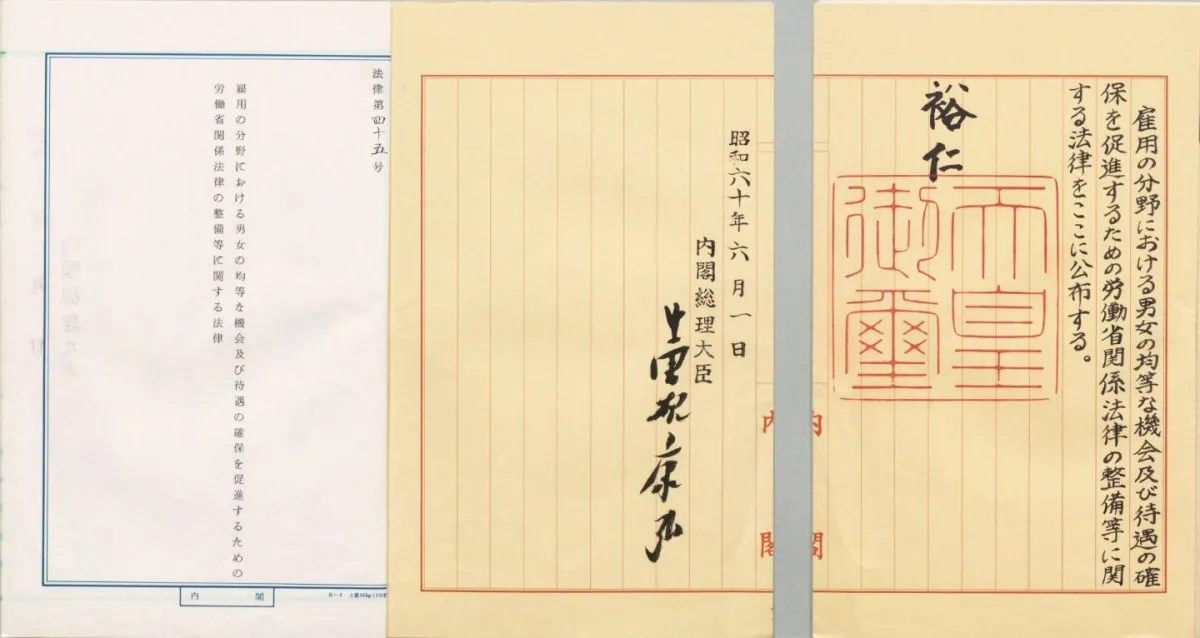 雇用の分野における男女の均等な機会及び待遇の確
保を促進するための労働省関係法律の整備等に関
する法律をここに公布する。
裕仁
天皇
御璽
内閣
昭和六十年六月一日
内閣総理大臣
中曽根康弘
法律第四十五号
雇用の分野における男女の均等な機会及び待遇の確保を促進するための
労働省関係法律の整備等に関する法律
内閣